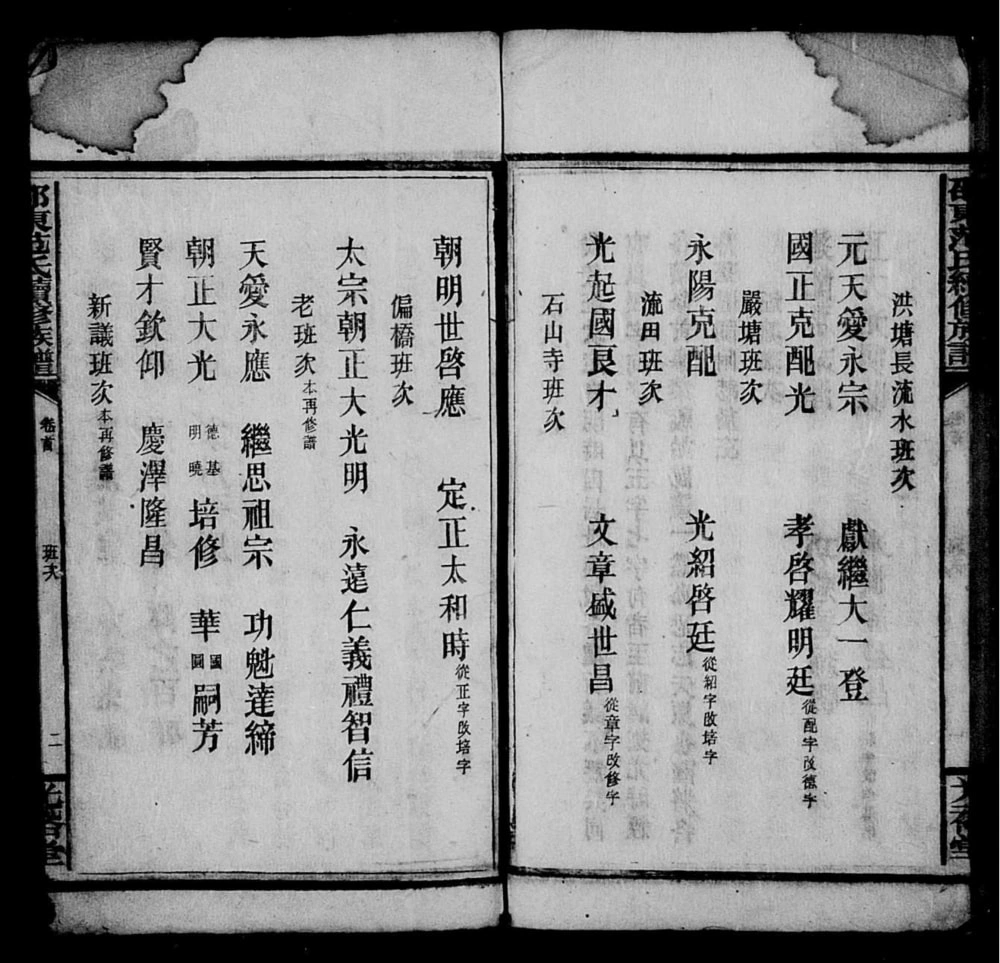 洪塘長流水班次
元天愛永宗 獻繼大一登
國正克配光 孝啓耀明廷從配字改德字
嚴塘班次
永陽克配 光紹啓廷從紹字改培字
流田班次
光起國良才 文章盛世昌從章字改修字
石山寺班次
朝明世啓應 定正太和時從正字改培字
偏橋班次
太宗朝正大光明 永遠仁義禮智信
老班次本再修譜
天愛永應 繼思祖宗 功勉達締
朝正大光 德基明曉 培修 華國圖 嗣芳
賢才欽仰 慶澤隆昌
新議班次本再修譜
邵東范氏續修族譜 卷首 班次 二